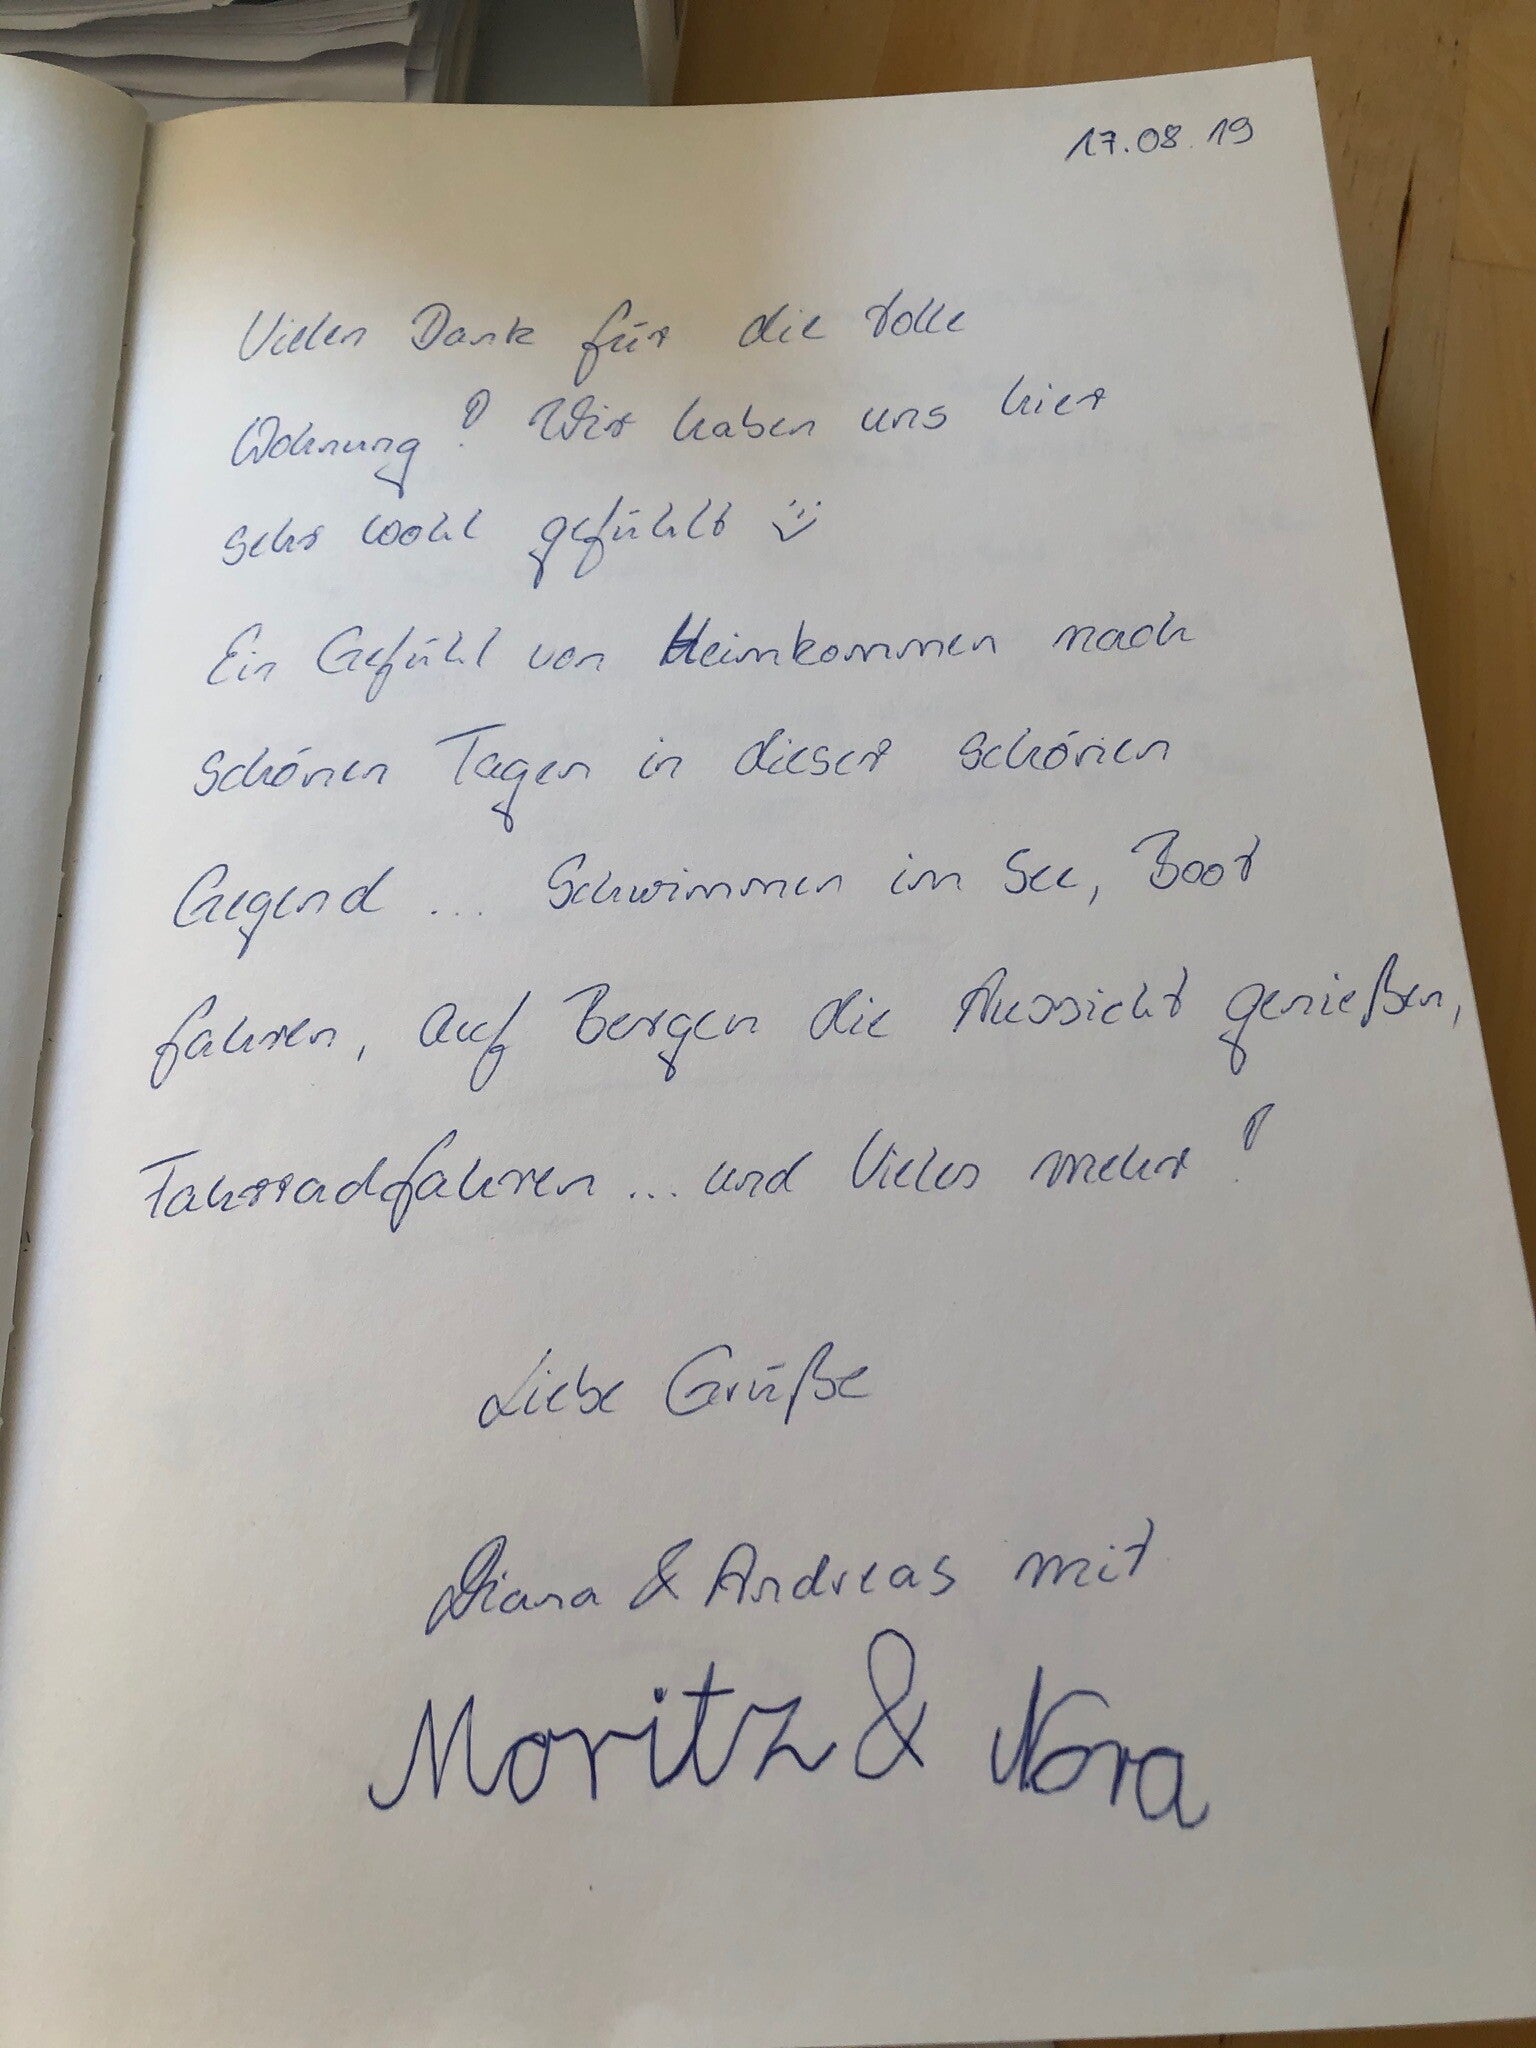 17.08.19
Vielen Dank für die tolle
Wohnung! Wir haben uns hier
sehr wohl gefühlt :)
Ein Gefühl von Heimkommen nach
schönen Tagen in dieser schönen
Gegend ... Schwimmen im See, Boot
fahren, auf Bergen die Aussicht genießen,
Fahrradfahren ... und Vieles mehr!
Liebe Grüße
Diana & Andreas mit
Moritz & Nora